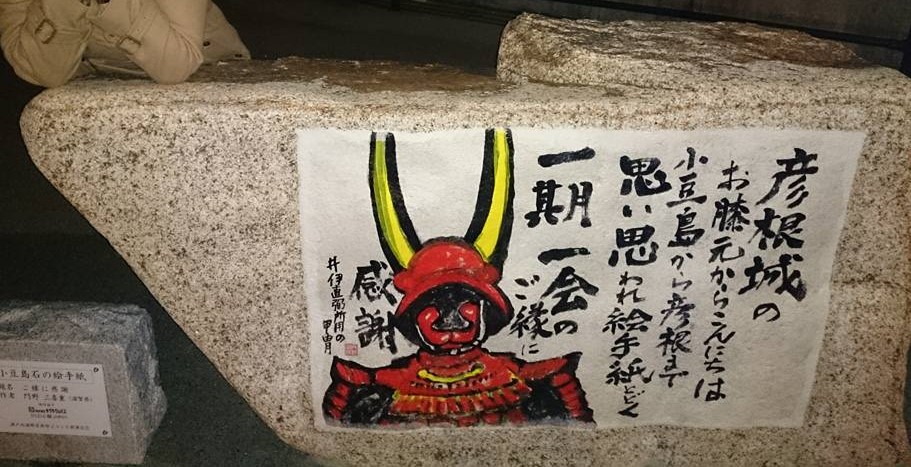 彦根城の
お膝元からこんにちは
小豆島から彦根まで
思い思われ絵手紙とどく
一期一会の
ご縁に
感謝
井伊直弼所用の
甲冑
小豆島石の絵手紙
ご縁に感謝